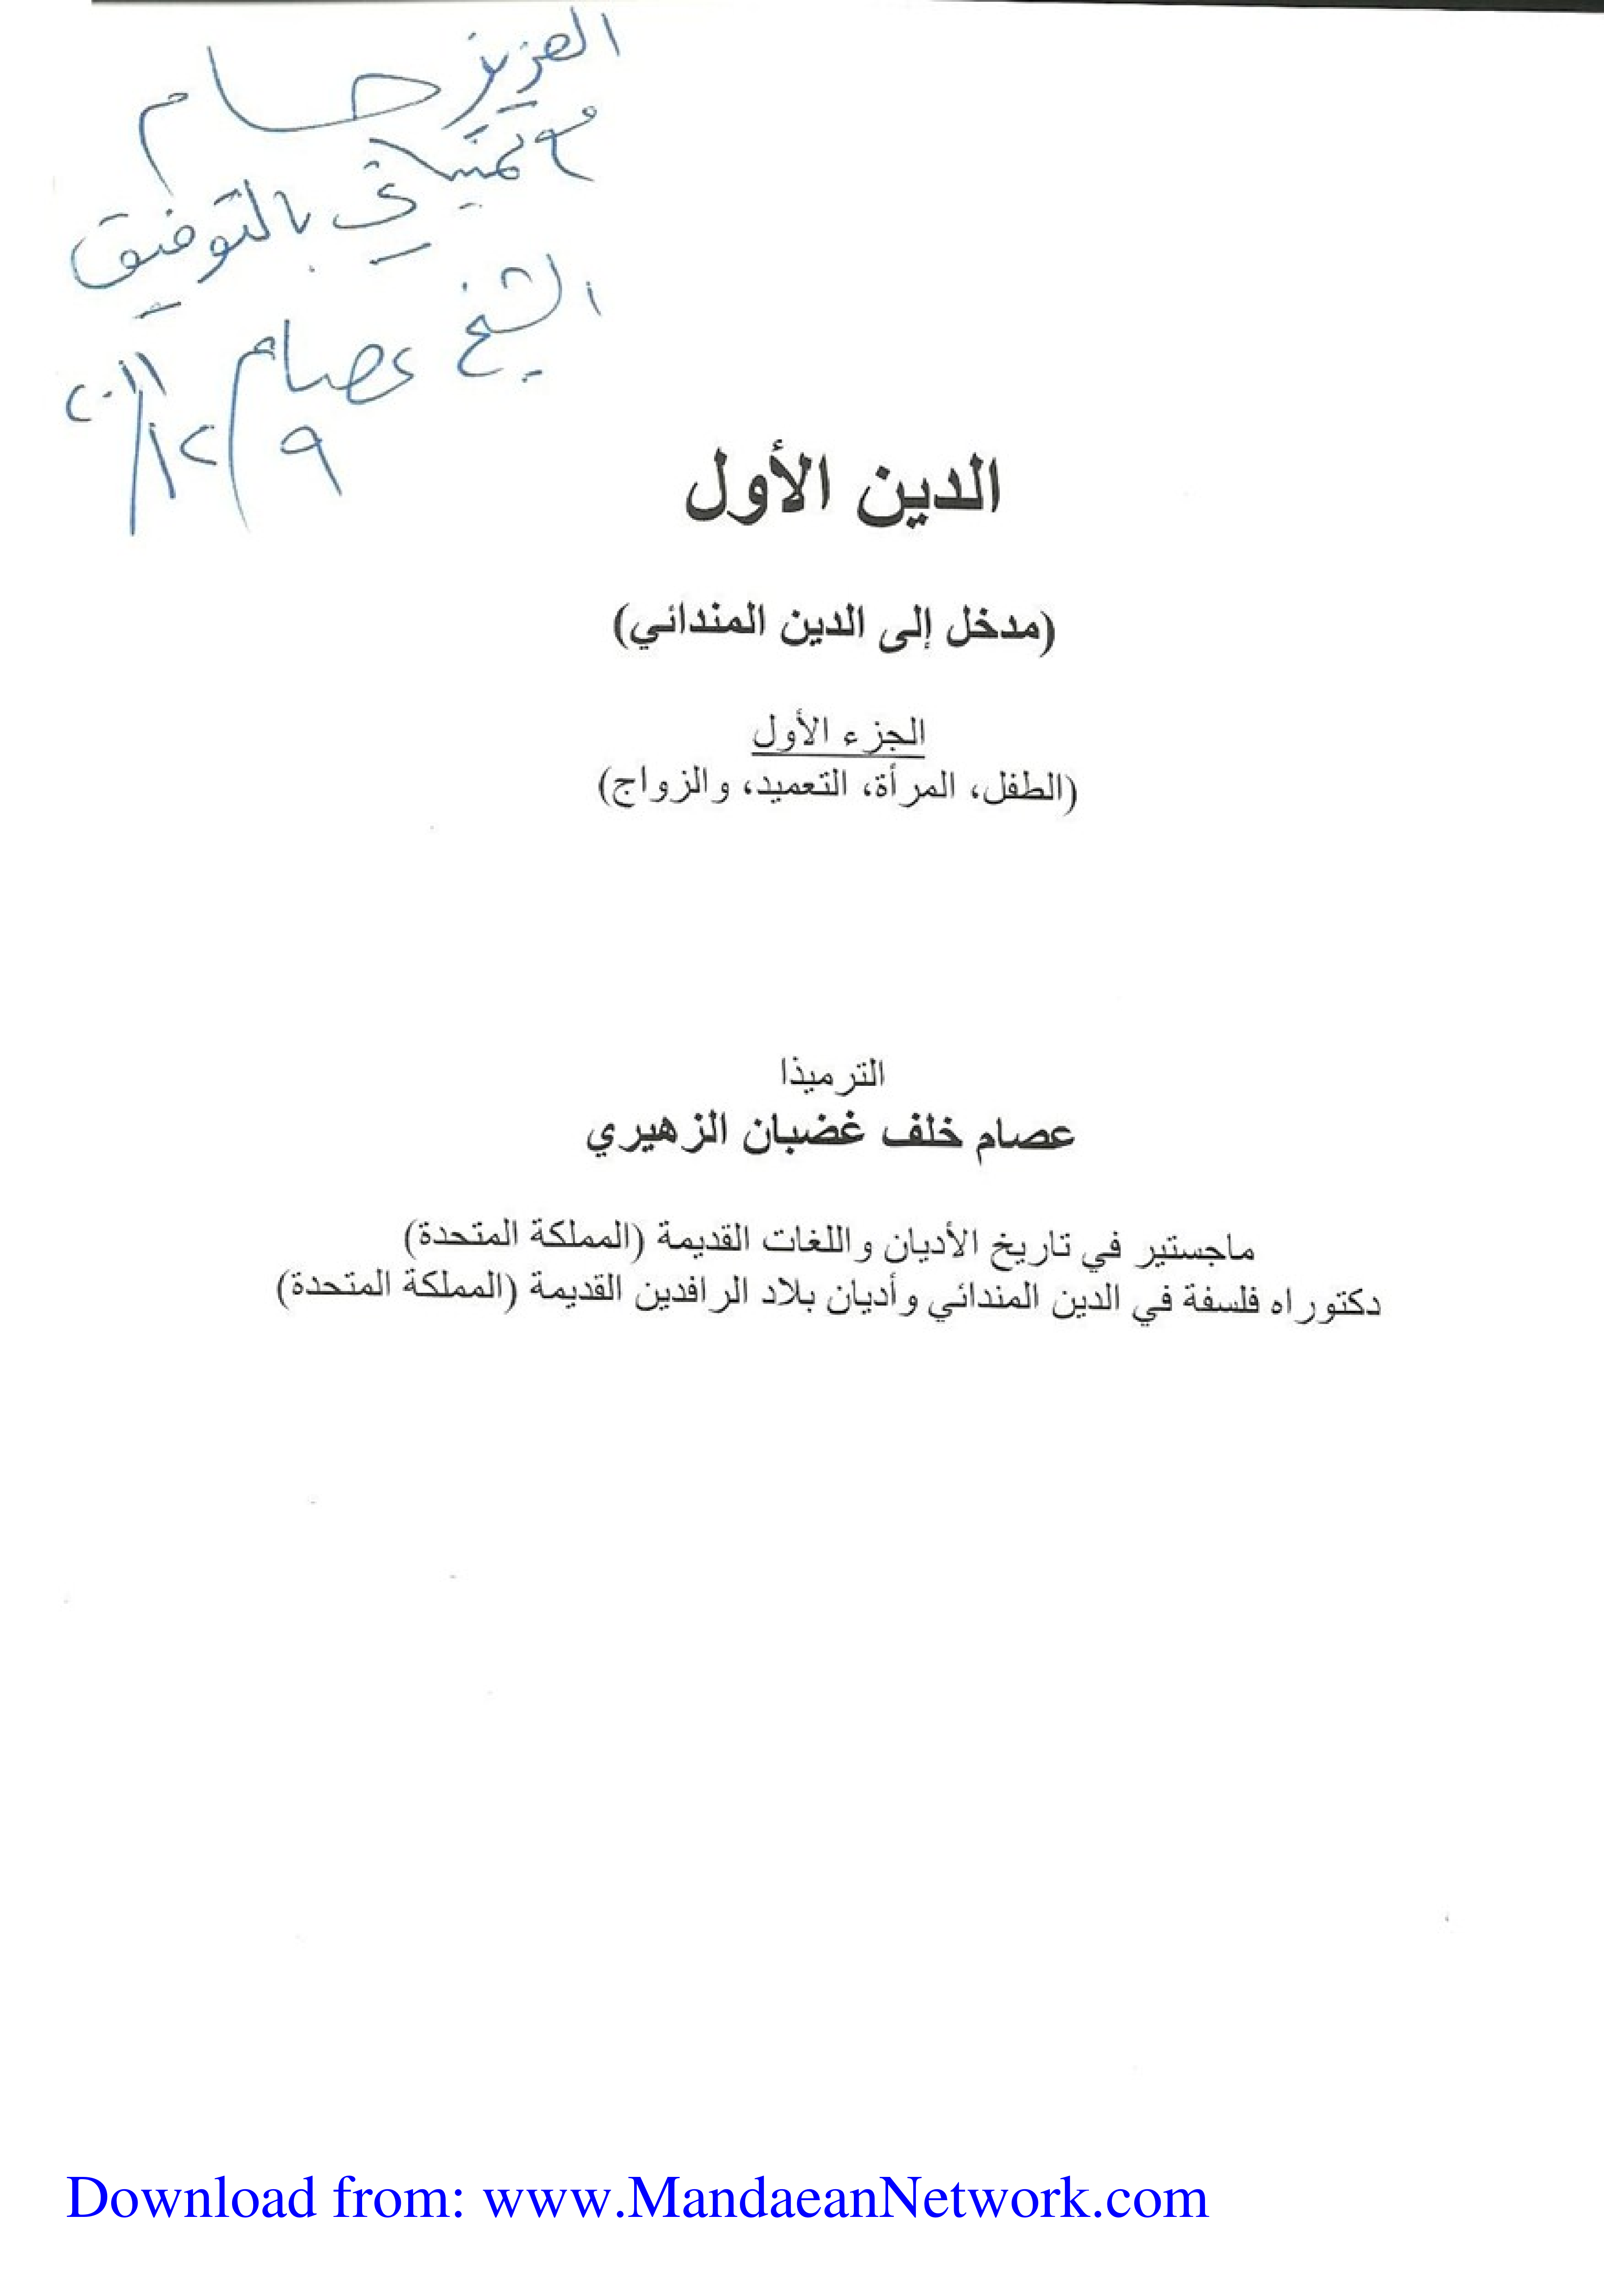 العزيز حسام
مع تمنياتي بالتوفيق
الشيخ عصام
٩/١٢/٢٠١١
الدين الأول
(مدخل إلى الدين المندائي)
الجزء الأول
(الطفل، المرأة، التعميد، والزواج)
الترميذا
عصام خلف غضبان الزهيري
ماجستير في تاريخ الأديان واللغات القديمة (المملكة المتحدة)
دكتوراه فلسفة في الدين المندائي وأديان بلاد الرافدين القديمة (المملكة المتحدة)
Download from: www.MandaeanNetwork.com